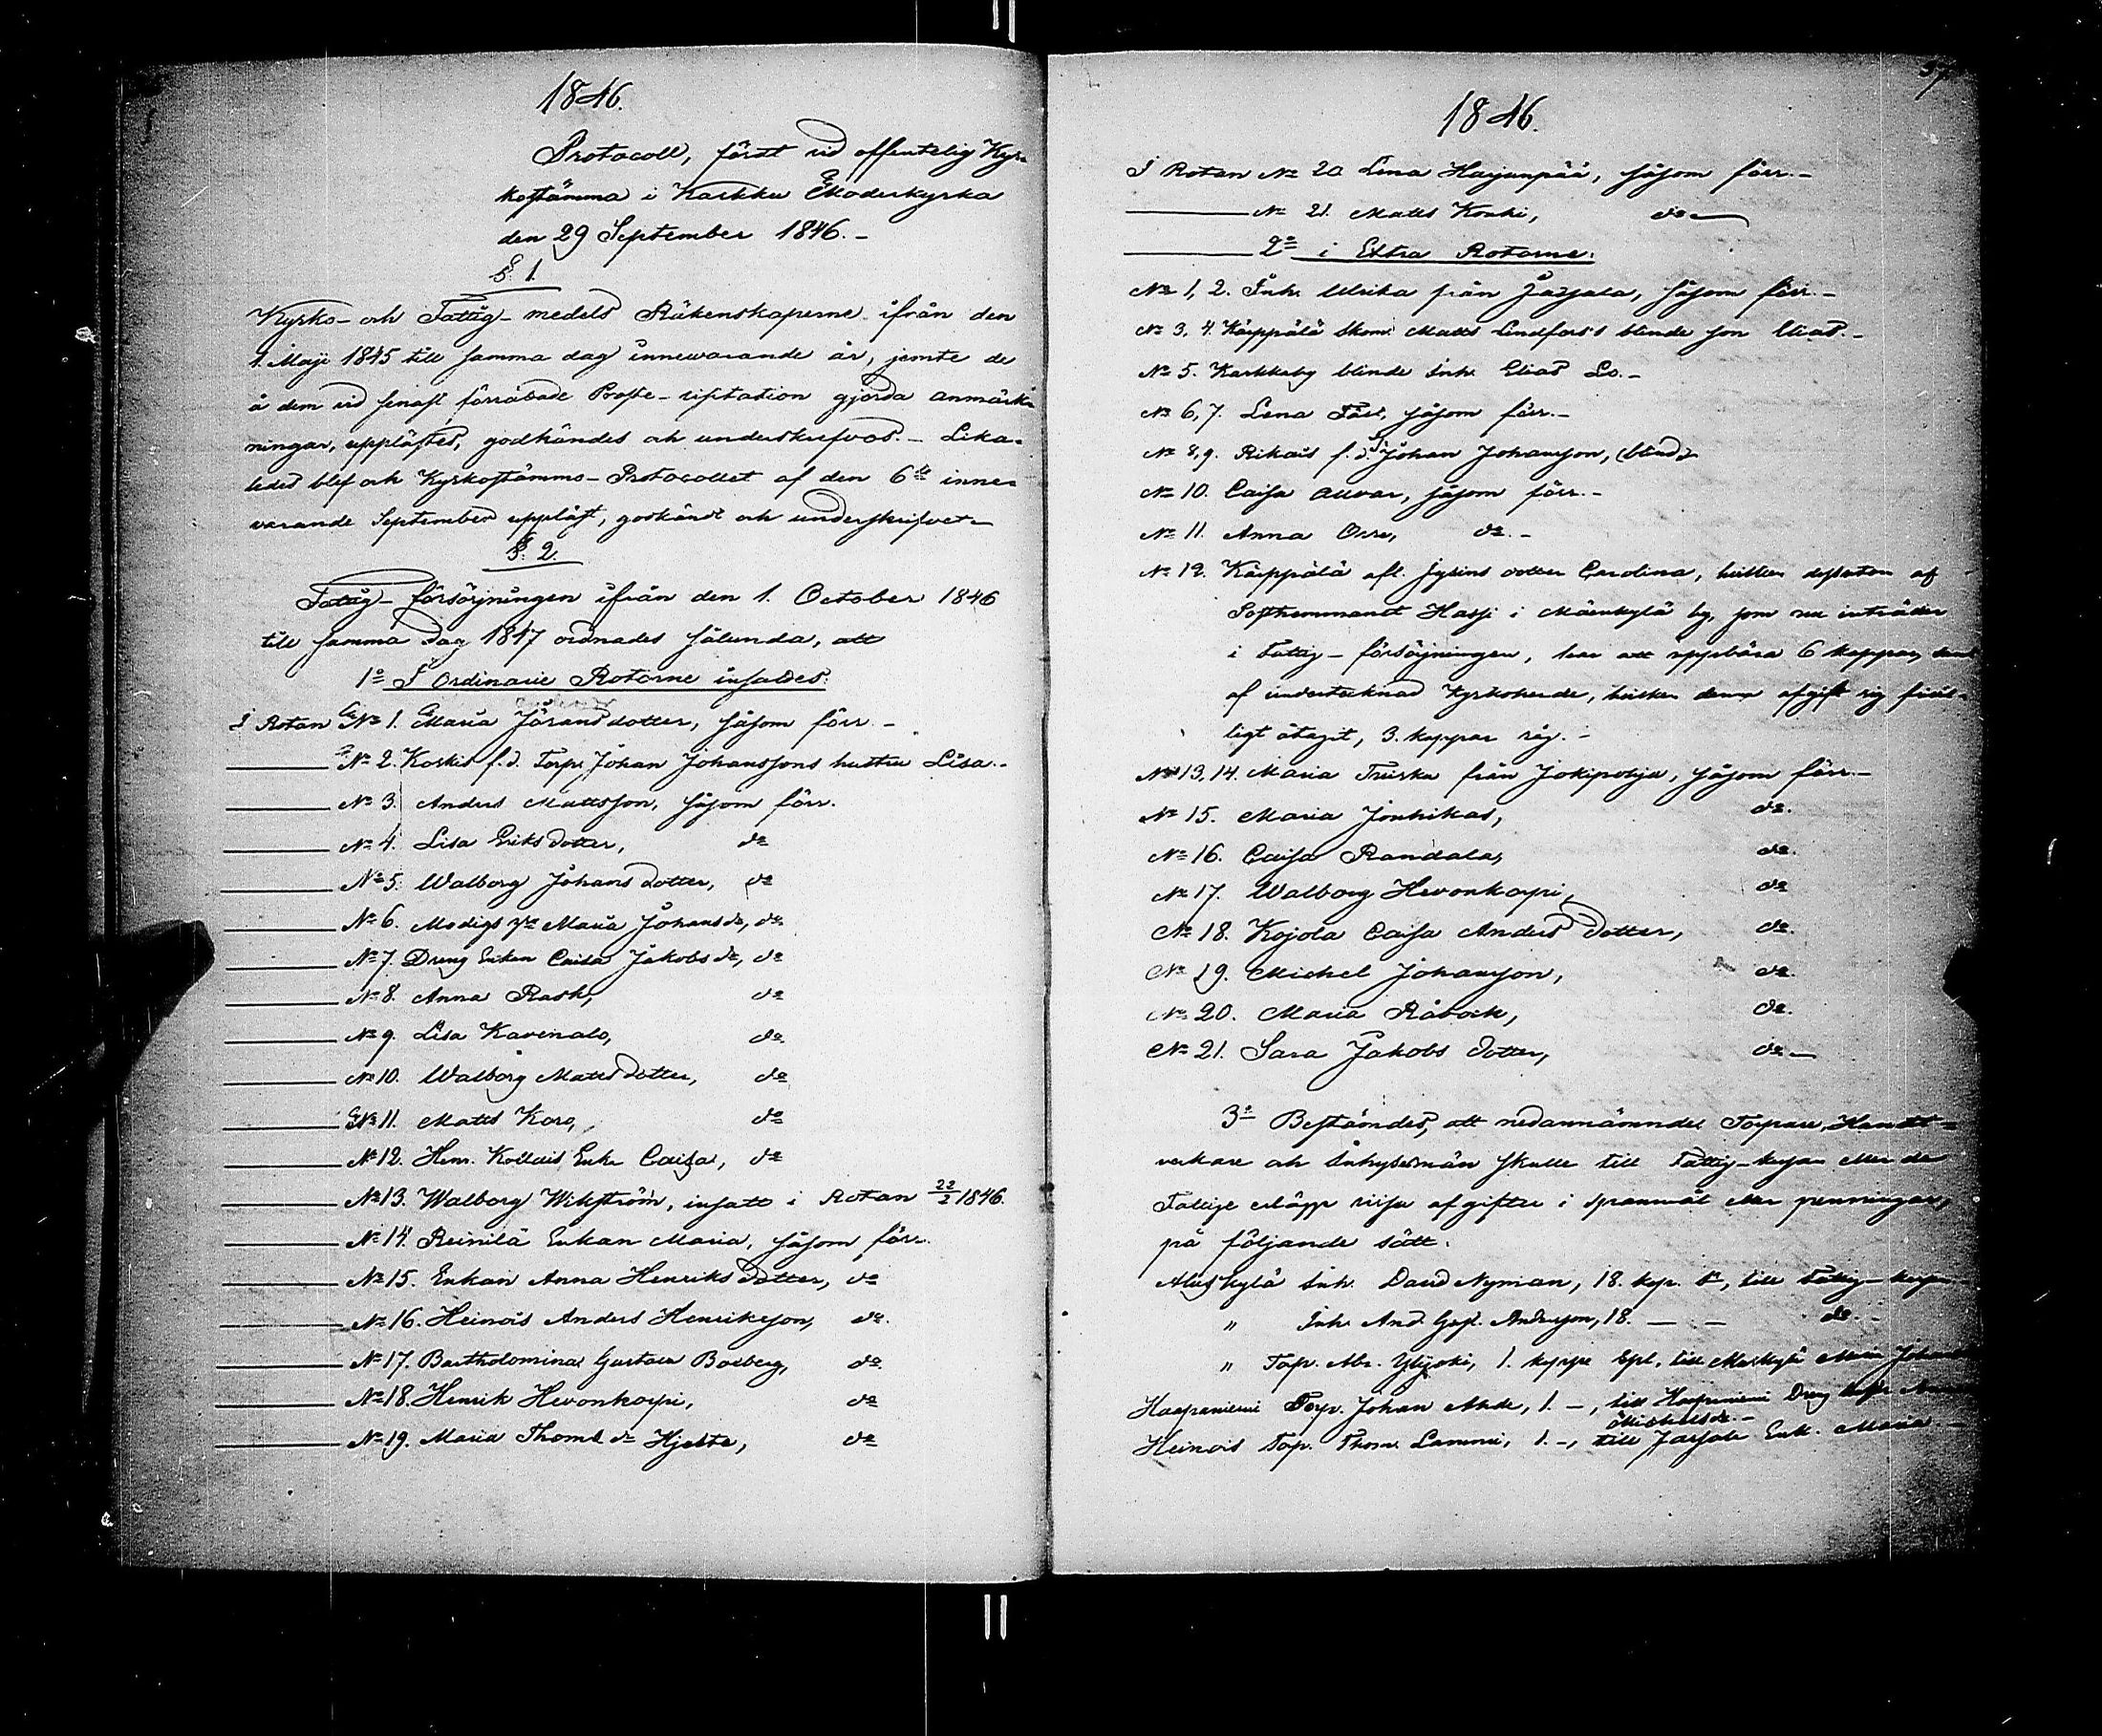 1846.
Protocoll, fördt vid offentelig Kyr-
kostämma i Karkku Moderkyrka
den 29 September 1846.-
§ 1.
Kyrko- och Fattig-medels Räkenskaperne ifrån den
1. Maji 1845 till samma dag innewarande år, jemte de
å dem vid senast förrättade Proste-visitation gjorda anmärk-
ningar, upplästes, godkändes och underskrefvos.- Lika-
ledes blef och Kyrkostämmo-Protocollet af den 6te inne-
varande September uppläst, godkändt och underskrifvet.-
§. 2.
Fattig-försörjningen ifrån den 1. October 1846
till samma dag 1847 ordnades sålunda, att
1o I Ordinarie Rotorne insattes:
I Rotan No 1. Maria Jöransdotter, såsom förr.-
No 2. Koskis f.d. Torp. Johan Johanssons hustru Lisa.-
No 3. Anders Mattsson, såsom förr.
No 4. Lisa Eriksdotter, do
No 5. Walborg Johansdotter, do
No 6. Modigs Maria Johansdr, do
No 7. Dreng Enkan Caisa Jakobsdr, do
No 8. Anna Rask, do
No 9. Lisa Kavenalo, do
No 10. Walborg Mattsdotter, do
No 11. Matts Koro, do
No 12. Hem. Kollais Enka Caisa, do
No 13. Walborg Wikström, insatt i Rotan 22/2 1846.
No 14. Reinilä Enkan Maria, såsom förr.
No 15. Enkan Anna Henriksdotter, do
No 16. Heinois Anders Henriksson, do.
No 17. Bartholomina Gustava Boxberg, do
No 18. Henrik Hevonkorpi, do
No 19. Maria Thomédr Hjelte, do
1846.
I Rotan No 20 Lena Harjunpää, såsom förr.-
No 21. Matts Konki, do
2o i Extra Rotorne:
No 1, 2. Inh. Ulrika från Järjala, såsom förr.-
No 3, 4. Käppälä Skom. Matts Lindfors's blinde son Elias.-
No 5. Karkkaby blinde Inh. Elias Lo.-
No 6, 7. Lena Färt, såsom förr.-
No 8, 9. Rikais f.d. Johan Johansson, (blind)
No 10. Caisa Auvar, såsom förr.-
No 11. Anna Orre, do.-
No 12. Käppälä afl. dotter Carolina, hvilken af
Hassi i Mäenkylä by, som nu inträder
i Fattig-försörjningen, har att uppbära 6 kappar, samt
af undertecknad Kyrkoherde, hvilken denna afgift sig frivil-
ligt åtagit, 3. kappar råg.-
No 13, 14. Maria Truska från Jokipohja, såsom förr.-
No 15. Maria Jonhikas, do.
No 16. Caisa Randala, do.
No 17. Walborg Hevonkorpi, do
No 18. Kojola Caisa Andersdotter, do.
No 19. Michel Johansson, do.
No 20. Maria Råbock, do.
No 21. Sara Jakobsdotter, do
3o Bestämdes, att nedannämnde Torpare, Handt-
verkare och Inhysesmän skulle till Fattig-kassan eller de
Fattige erlägga vissa afgifter i spannmål eller penningar,
på följande sätt.
Aluskylä Inh. David Nyman, 18. kop. Sr, till Fattig-
" Inh. And. Gust. Andersson, 18. - - do.-
" Torp. Abr. Ylijoki, 1. kappe Spl. till Maria
Haapaniemi Torp. Johan 1.-, till Haapaniemi Dreng
Michelsdr.-
Heinois Torp. Thom. Lammi, 1.-, till Järjala Enk. Maria